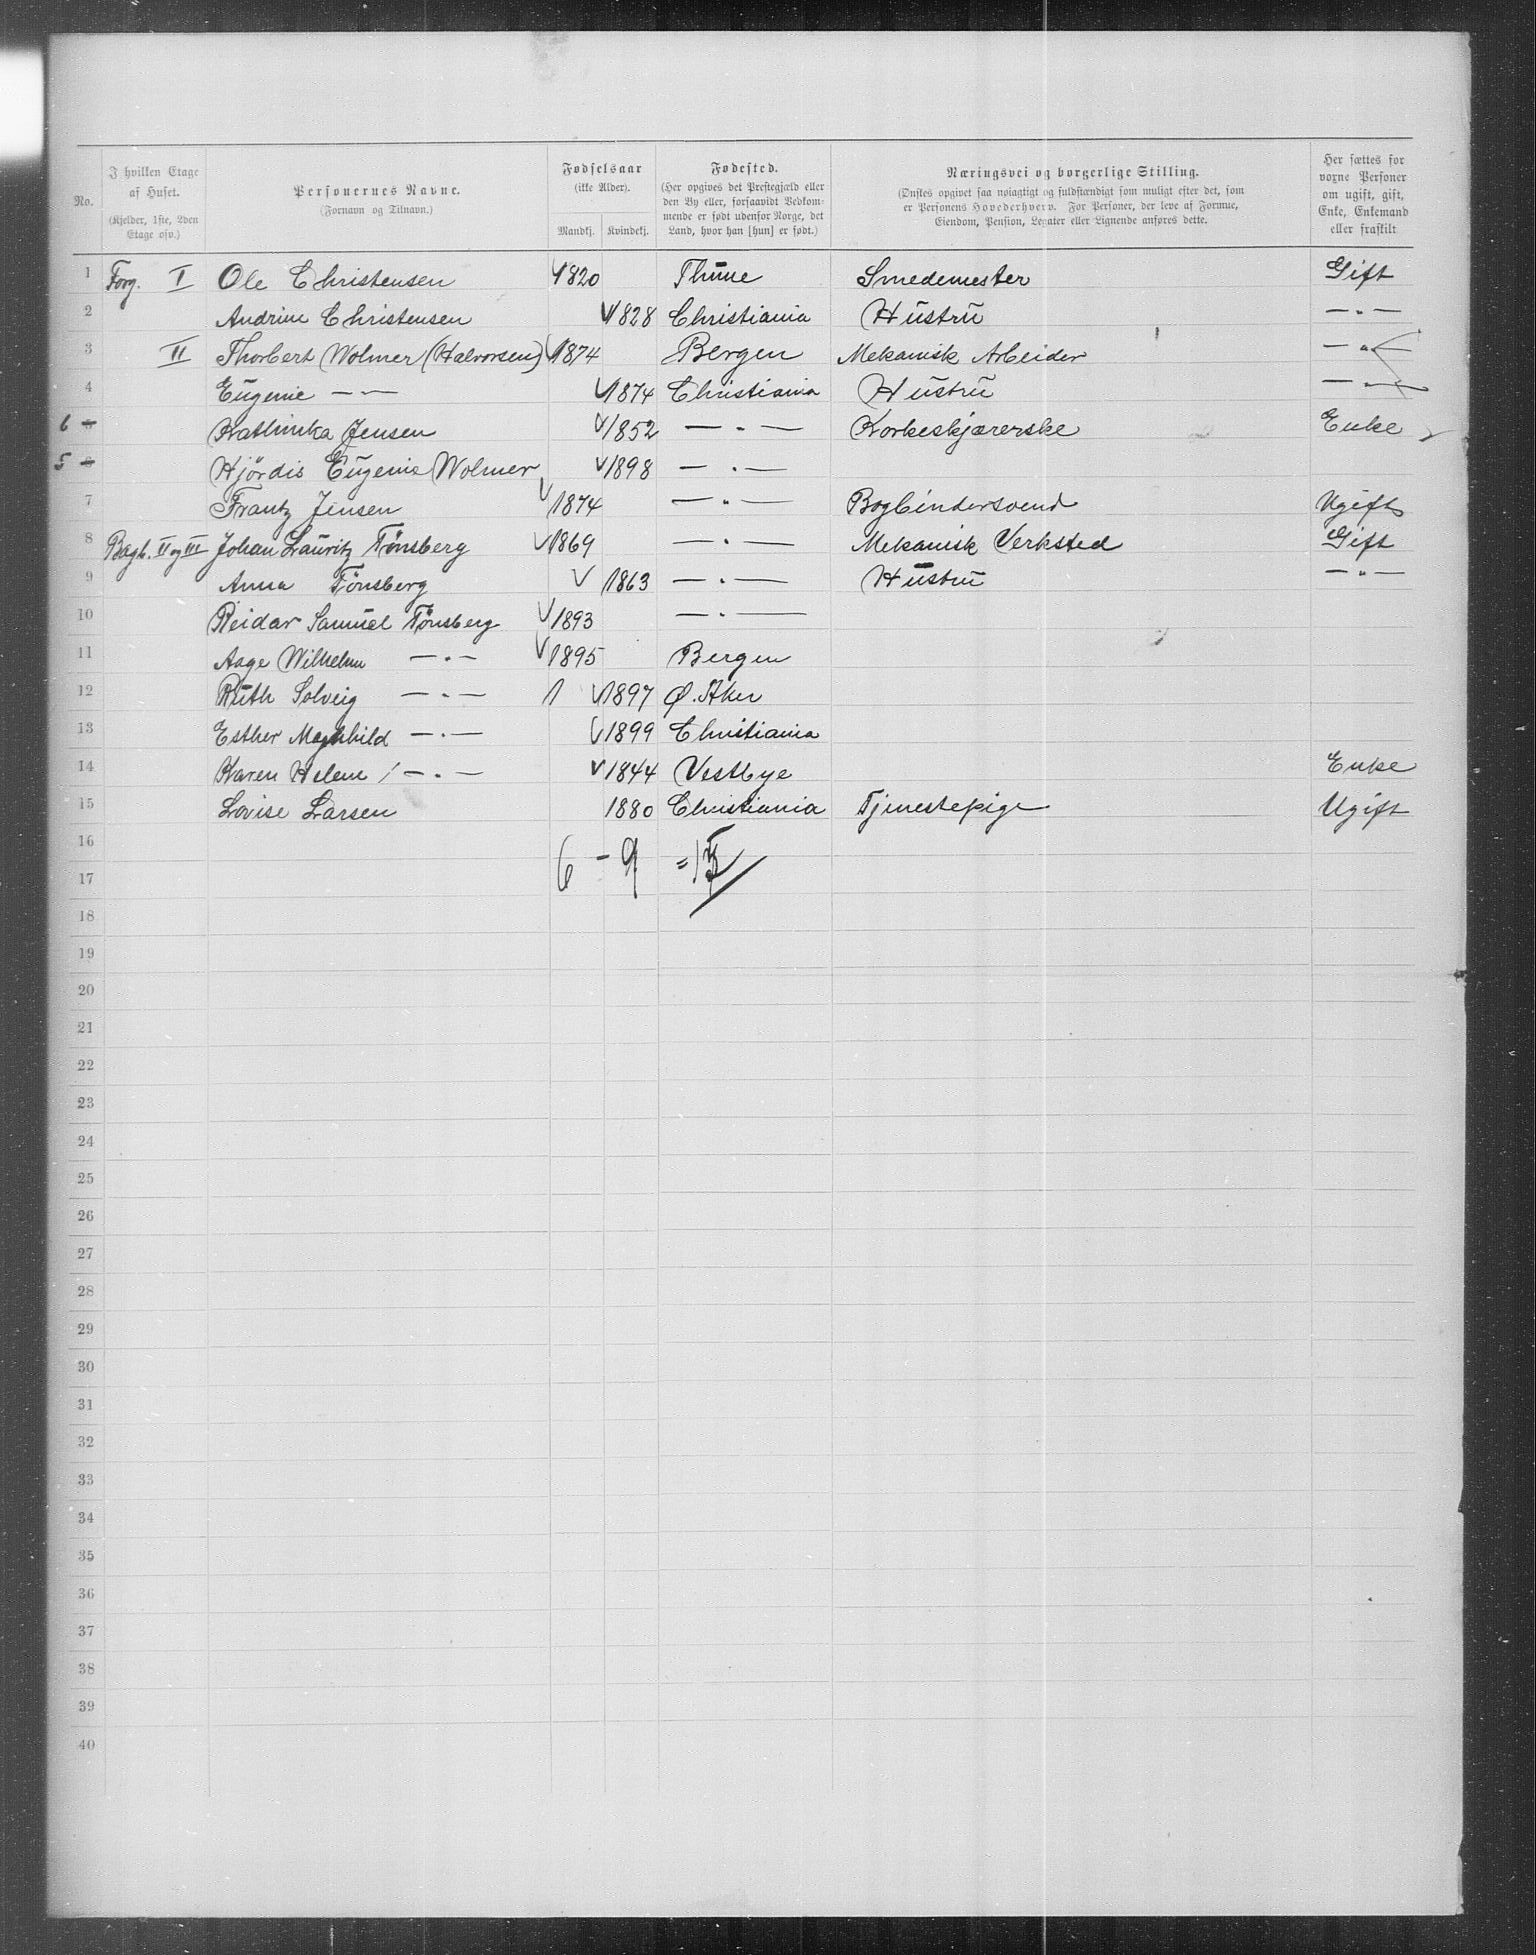 No.
I hvilken Etage af Huset.
(Kjelder, 1ste, 2den Etage osv.)
Personernes Navne.
(Fornavn og Tilnavn.)
Fødselsaar
(ikke Alder).
Mandkj. Kvindekj.
Fødested.
(Her opgives det Prestegjæld eller den By eller, forsaavidt Vedkommende er født udenfor Norge, det Land, hvor han [hun] er født.)
Næringsvei og borgerlige Stilling.
(Ønskes opgivet saa nøiagtigt og fuldstændigt som muligt efter det, som er Personens Hovederhverv. For Personer, der leve af Formue, Eiendom, Pension, Legater eller Lignende anføres dette.
Her sættes for voxne Personer om ugift, gift, Enke, Enkemand eller fraskilt
1 Forg. I Ole Christensen 1820 Thune Smedemester Gift
2 Andrine Christensen 1828 Christiania Hustru — " —
3 II Thorbert Wolmer (Halvorsen) 1874 Bergen Mekanisk Arbeider — " —
4 Eugenie — " — 1874 Christiania Hustru — " —
6 Kathinka Jensen 1852 — " — Korkeskjærerske Enke
5 Hjördis Eugenie Wolmer 1898 — " —
7 Frantz Jensen 1874 — " — Bogbindersvend Ugift
8 Bagb. II og III Johan Lauritz Tönsberg 1869 — " — Mekanisk Verksted Gift
9 Anna Tönsberg 1863 — " — Hustru — " —
10 Reidar Samuel Tönsberg 1893 — " —
11 Aage Wilhelm — " — 1895 Bergen
12 Ruth Solveig — " — 1 1897 Ø. Aker
13 Esther Maghild — " — 1899 Christiania
14 Karen Helene — " — 1844 Vestbye Enke
15 Lovise Larsen 1880 Christiania Tjenestepige Ugift
16
6 - 9 = 15
17
18
19
20
21
22
23
24
25
26
27
28
29
30
31
32
33
34
35
36
37
38
39
40